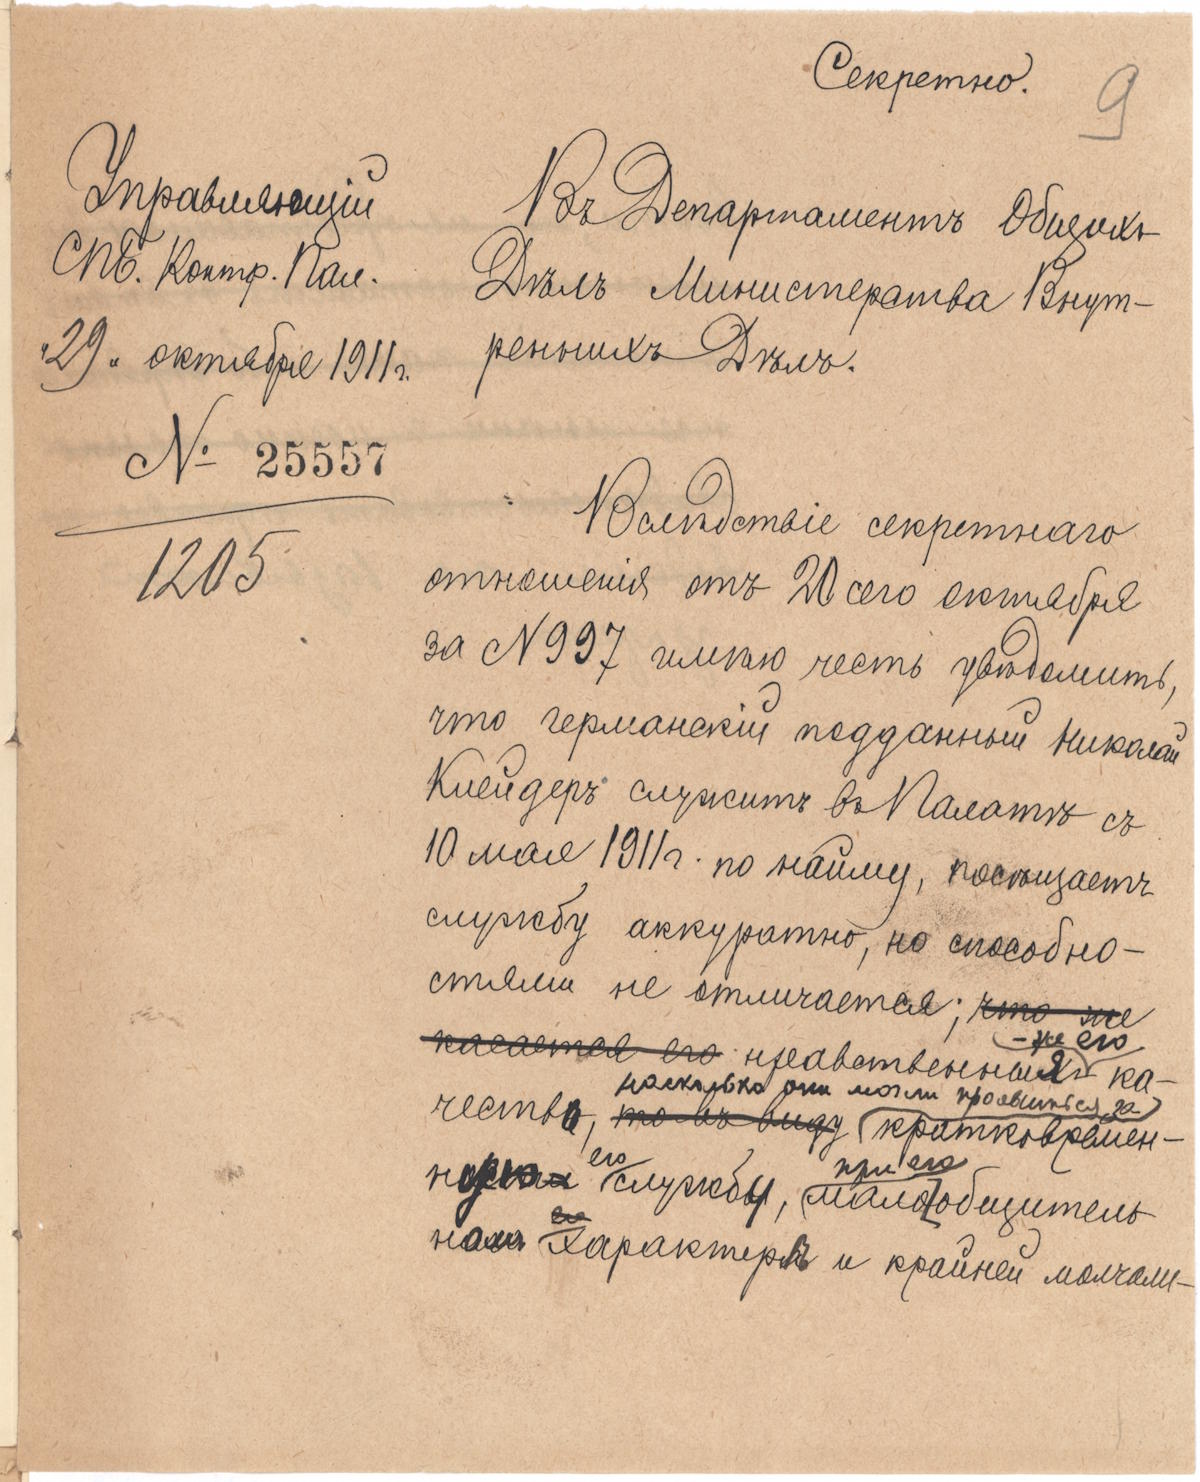 Секретно.
9
Управляющій
СПБ. Контр. Пал.
"29" октября 1911 г.
№ 25557
1205
Въ Департаментъ Общихъ
Дѣлъ Министерства Внут-
реннихъ Дѣлъ.
Вслѣдствіе секретнаго
отношенія отъ 20 сего октября
за № 997 имѣю честь увѣдомить,
что германскій подданный Николай
Клейдеръ служитъ въ Палатѣ съ
10 мая 1911 г. по найму, посѣщаетъ
службу аккуратно, но способно-
стями не отличается; что же
касается его нравственныя
- же его
ка-
чества, то въ виду
насколько они могли проявиться за
кратковремен-
ную его службу,
при его
мало общитель
номъ характерѣ и крайней молчали-